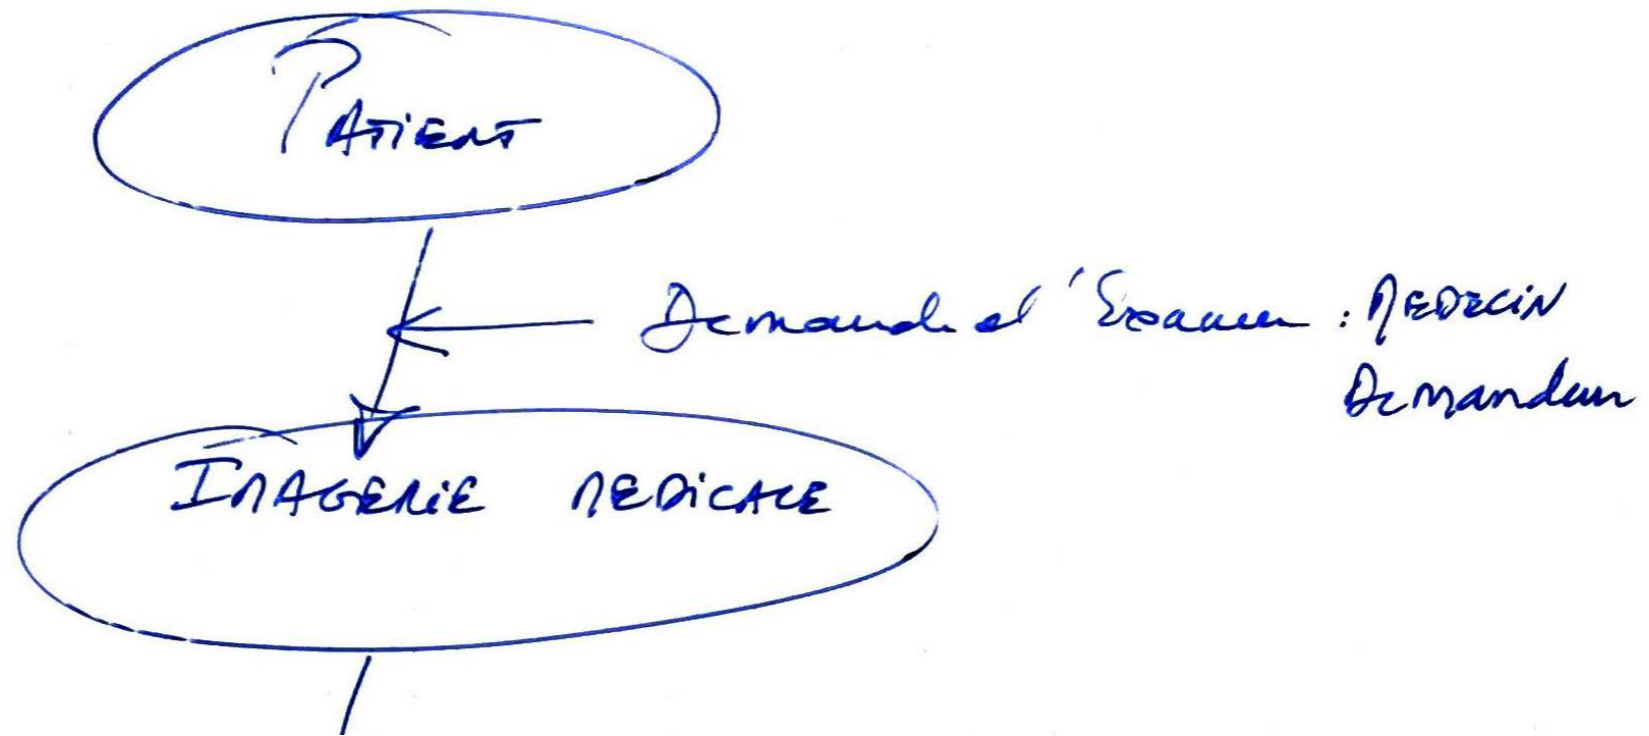 PATIENT
Demande d'Examen : MEDECIN
Demandeur
IMAGERIE MEDICALE